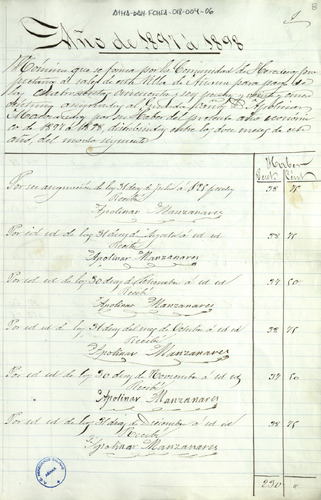 AMHA-DAH-FCHEA-018-004-06
8
Año de 1897 á 1898
Nómina que se forma por la Comunidad de Herederos pro
de esta Villa de para pago
cincuenta y seis pesetas y
Guarda D. Apolinar
Manzanares por su Haber del presente año económi
co de 1897 á 1898, distribuidas entre los doce meses de este
año, del modo siguiente
Haber
Pesets Cents
Por su asignación de los 31 dias de Julio á 1'25 pesetas 38 75
Recibí
Apolinar Manzanares
Por id id de los 31 dias de Agosto á id id 38 75
Recibí
Apolinar Manzanares
Por id id de los 30 dias de Setiembre á id id 37 50
Recibí
Apolinar Manzanares
Por id id de los 31 dias del mes de Octubre á id id 38 75
Recibí
Apolinar Manzanares
Por id id de los 30 dias de Noviembre á id id 37 50
Recibí
Apolinar Manzanares
Por id id de los 31 dias de Diciembre á id id 38 75
Recibí
Apolinar Manzanares
230 "